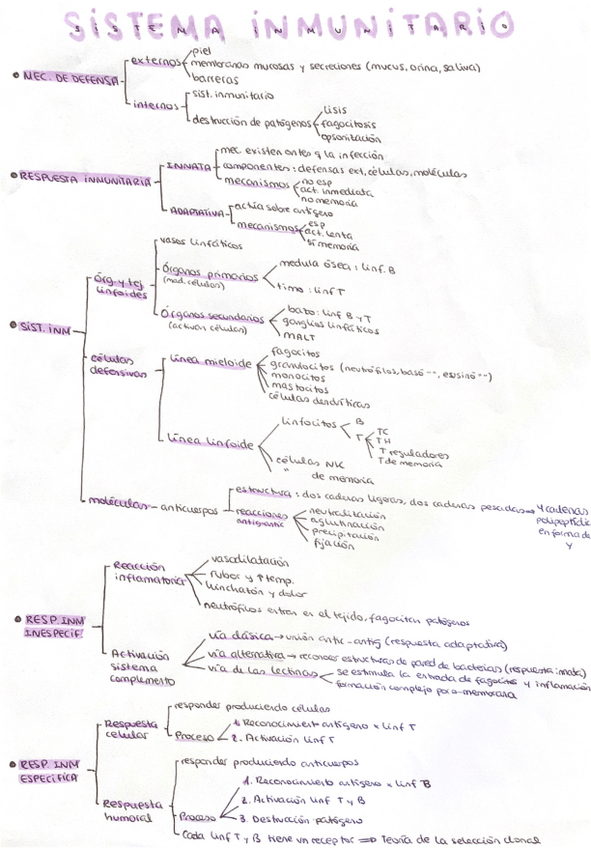 SISTEMA INMUNITARIO
SISTEMA INMUNITARIO
• MEC. DE DEFENSA
externos
piel
membranas mucosas y secreciones (mucus, orina, saliva)
barreras
internos
sist. inmunitario
destrucción de patógenos
lisis
fagocitosis
opsonización
• RESPUESTA INMUNITARIA
INNATA
mec. existen antes q la infección
componentes: defensas ext, células, moléculas
mecanismos
no esp
act. inmediata
no memoria
ADAPTATIVA
actúa sobre antígeno
mecanismos
esp
act. lenta
sí memoria
• SIST. INM
órg y tej
linfoides
vasos linfáticos
órganos primarios
(mad. células)
medula ósea: linf. B
timo: linf T
órganos secundarios
(activan células)
bazo: linf B y T
ganglios linfáticos
MALT
células
defensivas
línea mieloide
fagocitos
granulocitos (neutrófilos, basó --, eosinó --)
monocitos
mastocitos
células dendríticas
línea linfoide
linfocitos
B
T
TC
TH
T reguladores
T de memoria
células NK
" de memoria
moléculas - anticuerpos
estructura: dos cadenas ligeras, dos cadenas pesadas → 4 cadenas
polipeptídic
en forma de
Y
reacciones
antig-antic
neutralización
aglutinación
precipitación
fijación
• RESP. INM
INESPECIF.
Reacción
inflamatoria
vasodilatación
rubor y ↑ temp.
hinchazón y dolor
neutrófilos entran en el tejido, fagocitan patógenos
Activación
sistema
complemento
vía clásica → unión antic-antig (respuesta adaptativa)
vía alternativa → reconocer estructuras de pared de bacterias (respuesta innata)
vía de las lectinas
se estimula la entrada de fagocitos y inflamación
formación complejo poro-membrana
• RESP. INM
ESPECÍFICA
Respuesta
celular
responder produciendo células
Proceso
1. Reconocimient antígeno x linf T
2. Activación linf T
Respuesta
humoral
responder produciendo anticuerpos
Proceso
1. Reconocimiento antígeno x linf B
2. Activación linf T y B
3. Destrucción patógeno
Cada linf T y B tiene un receptor ⇒ Teoría de la selección clonal